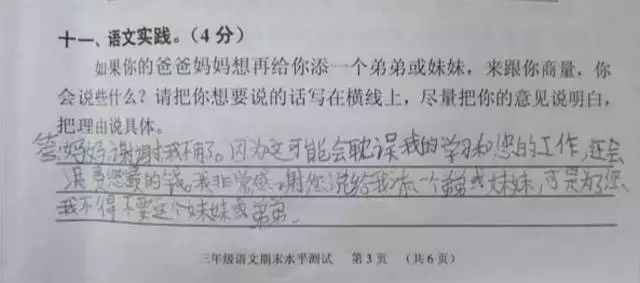 十一、语文实践。(4分)
如果你的爸爸妈妈想再给你添一个弟弟或妹妹，来跟你商量，你
会说些什么？请把你想要说的话写在横线上，尽量把你的意见说明白，
把理由说具体。
答:妈妈谢谢我不用了。因为这可能会耽误我的学习和您的工作，还会
浪费您的钱。我非常感谢您说给我添一个弟弟或妹妹，可是为了您、
我不得不要这个妹妹或弟弟。
三年级语文期末水平测试 第3页 (共6页)